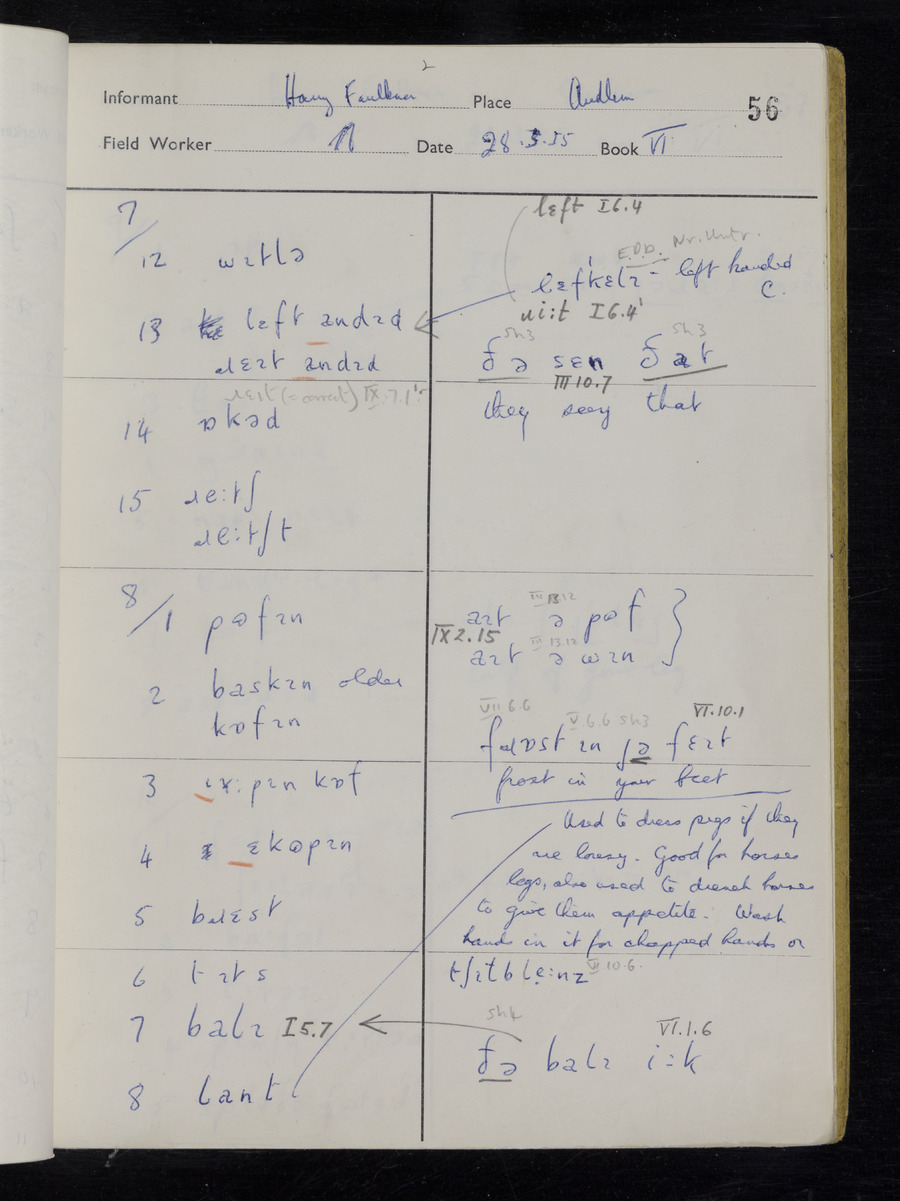 Informant Harry Faulkner Place Audlem 56
Field Worker Date 28.3.55 Book VI
7/
12 wɪtlə
13 lɛft andɪd
ɹɛɪt andɪd
ɹɛɪt (= correct) IX.7.1
14 ɒkəd
15 ɹe:tʃ
ɹe:tʃt
8/1 pɷfɪn
2 baskɪn older
kɒfɪn
3 pɪn kɒf
4 ɛkɷpɪn
5 bɹɛst
6 tɪts
7 balɪ I 5.7
8 lant
left I6.4
E.D.D.
lɛfkɛlɪ - left handed
C.
ɹi:t I6.4
sh3 sh3
ðə sɛn ðat
III 10.7
they seey that
aɪt ə pɷf III 13.12
IX 2.15
aɪt ə wɪn III 13.12
VII 6.6 V 6.6 sh3 VI.10.1
fɹɒst ɪn jə fɛɪt
frost in your feet
Used to dress pigs if they
are lousy. Good for horses
legs, also used to drench horses
to give them appetite. Wash
hands in it for chapped hands or
tʃɪtbleɪ:nz VI 10.6.
VI.1.6
ðə balɪ i:k